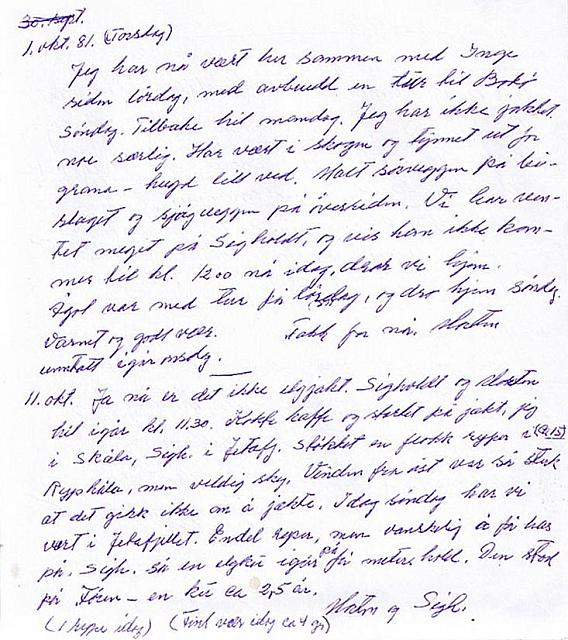 30. sept.
1. okt. 81. (Torsdag)
Jeg har nå vært her sammen med Inge
siden lördag, med avbrudd en tur til Bokö
söndag. Tilbake til mandag. Jeg har ikke jaktet
noe særlig. Har vært i skogen og tynnet ut for
grana - hugd litt ved. Malt sörveggen på
og sjågveggen på översiden. Vi har ven-
tet meget på Sigholdt, og vis han ikke kom-
mer til kl. 1200 nå idag, drar vi hjem.
var med tur på lördag, og dro hjem söndg.
Varmt og godt vær. Takk for nå.
unntatt igår onsdg.
11. okt. Ja nå er det ikke elgjakt. Sigholdt og
hit igår kl. 11.30. Kokte kaffe og startet på jakt, jeg
i Skåla, Sigh. i Jetafj. Støkket en flokk ryper i (Ca. 15)
Rypskåla, men veldig sky. Vinden fra öst var så sterk
at det gikk ikke an å jakte. Idag söndag har vi
vært i Jetafjellet. Endel ryper, men vanskelig å få has
på. Sigh. så en elgku igår på få meters hold. Den stod
på - en ku ca 2,5 år.
og Sigh.
(1 rype idag) (Fint vær idag ca 4 gr)